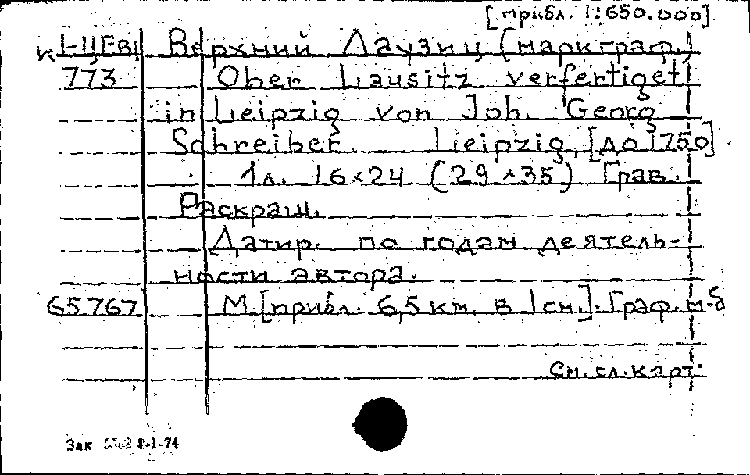 [прибл. 1:650.000]
к 1-ЦЕв1 Верхний Лаузиц (маркграф.)
773 Ober Lausitz verfertiget
in Leipzig von Joh. Georg
Schreiber. Leipzig, [до 1750]
1л. 16×24 (29×35) Грав.
Раскраш.
Датир. по годам деятель-
ности автора.
65767 М. [прибл. 6,5 км. в 1 см.]. Граф. м-б
См. сл. карт.
Зак 8-1-74